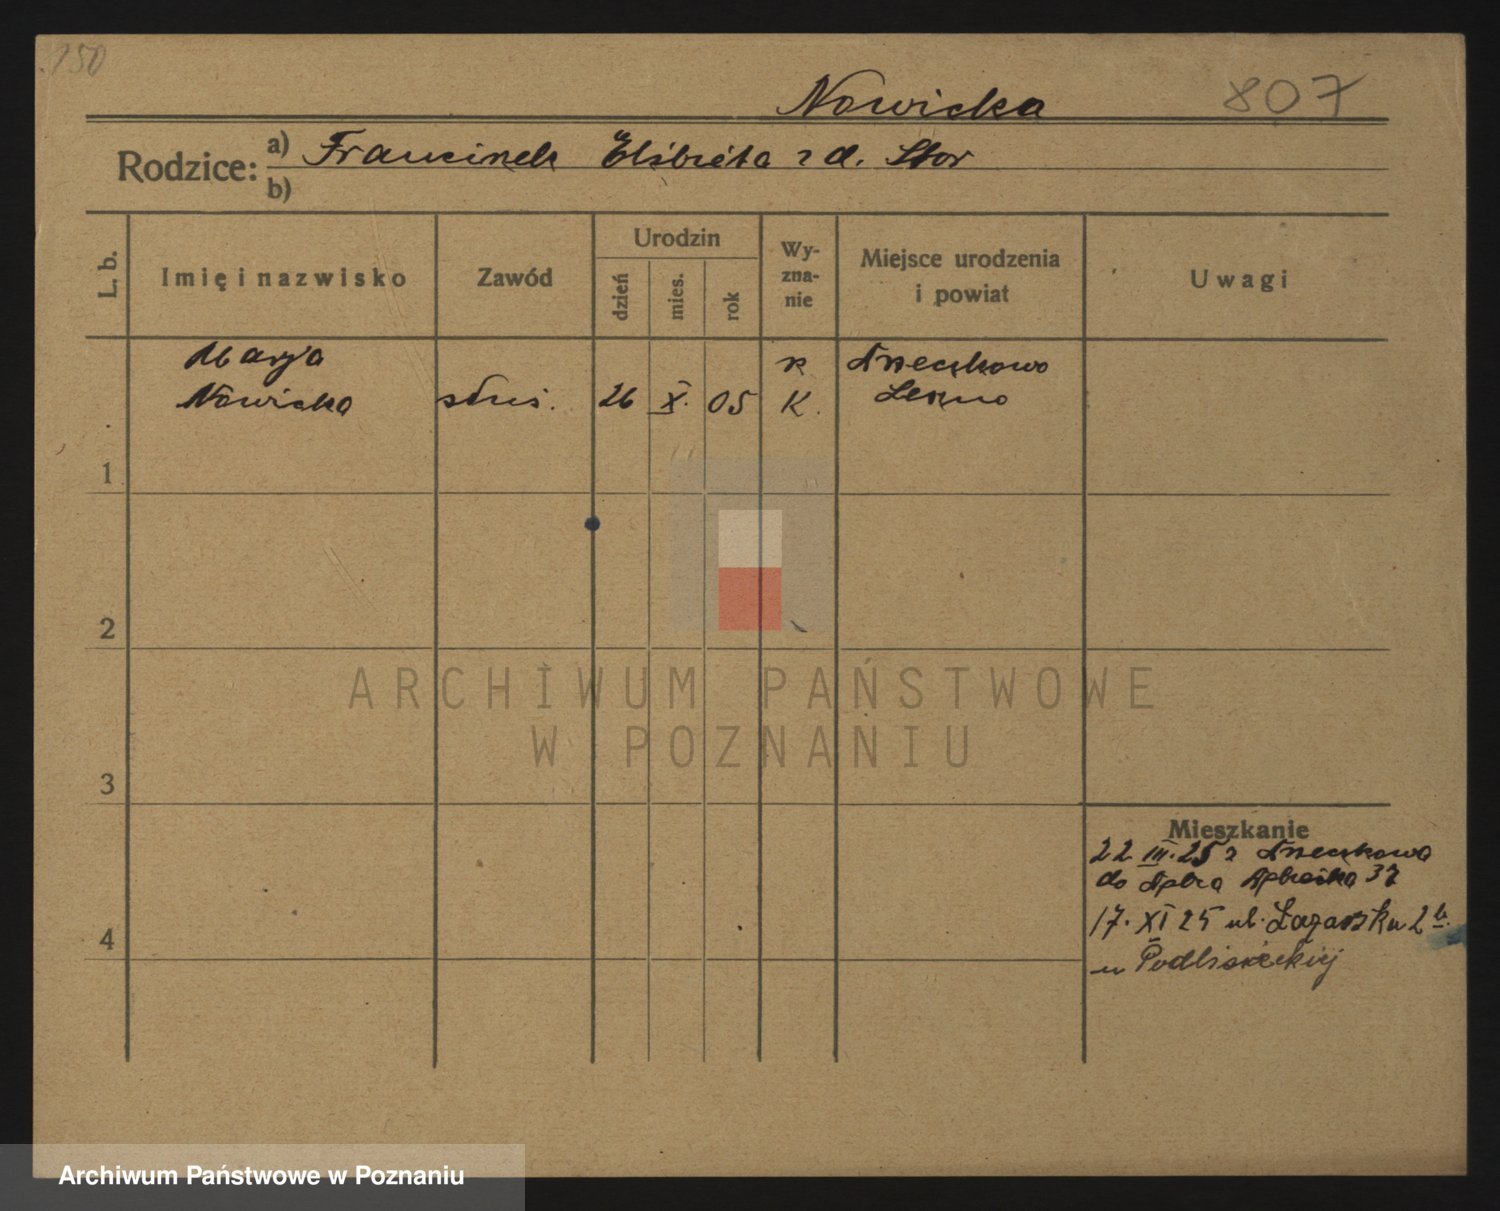 150
Nowicka 807
Rodzice: a) Franciszek Elżbieta z d. Stor
b)
L. b. Imię i nazwisko Zawód Urodzin dzień mies. rok Wyznanie Miejsce urodzenia i powiat Uwagi
Marja rz Trzeczkowo
Nowicka służ. 26 X. 05 K. Lekno
1
2
ARCHIWUM PAŃSTWOWE
W POZNANIU
3
Mieszkanie
22 III. 25 z
do 37
17. XI 25 ul. Łazarska 2 b.
4
u Podlisieckiej
Archiwum Państwowe w Poznaniu